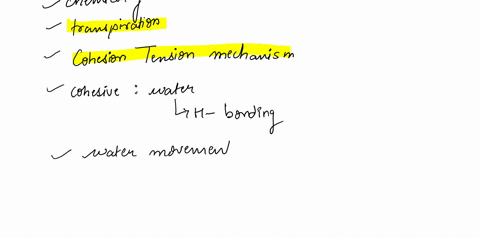 ✓ chemistry
✓ transpiration
✓ Cohesion Tension mechanism
✓ cohesive : water
↳ H- bonding
✓ water movement